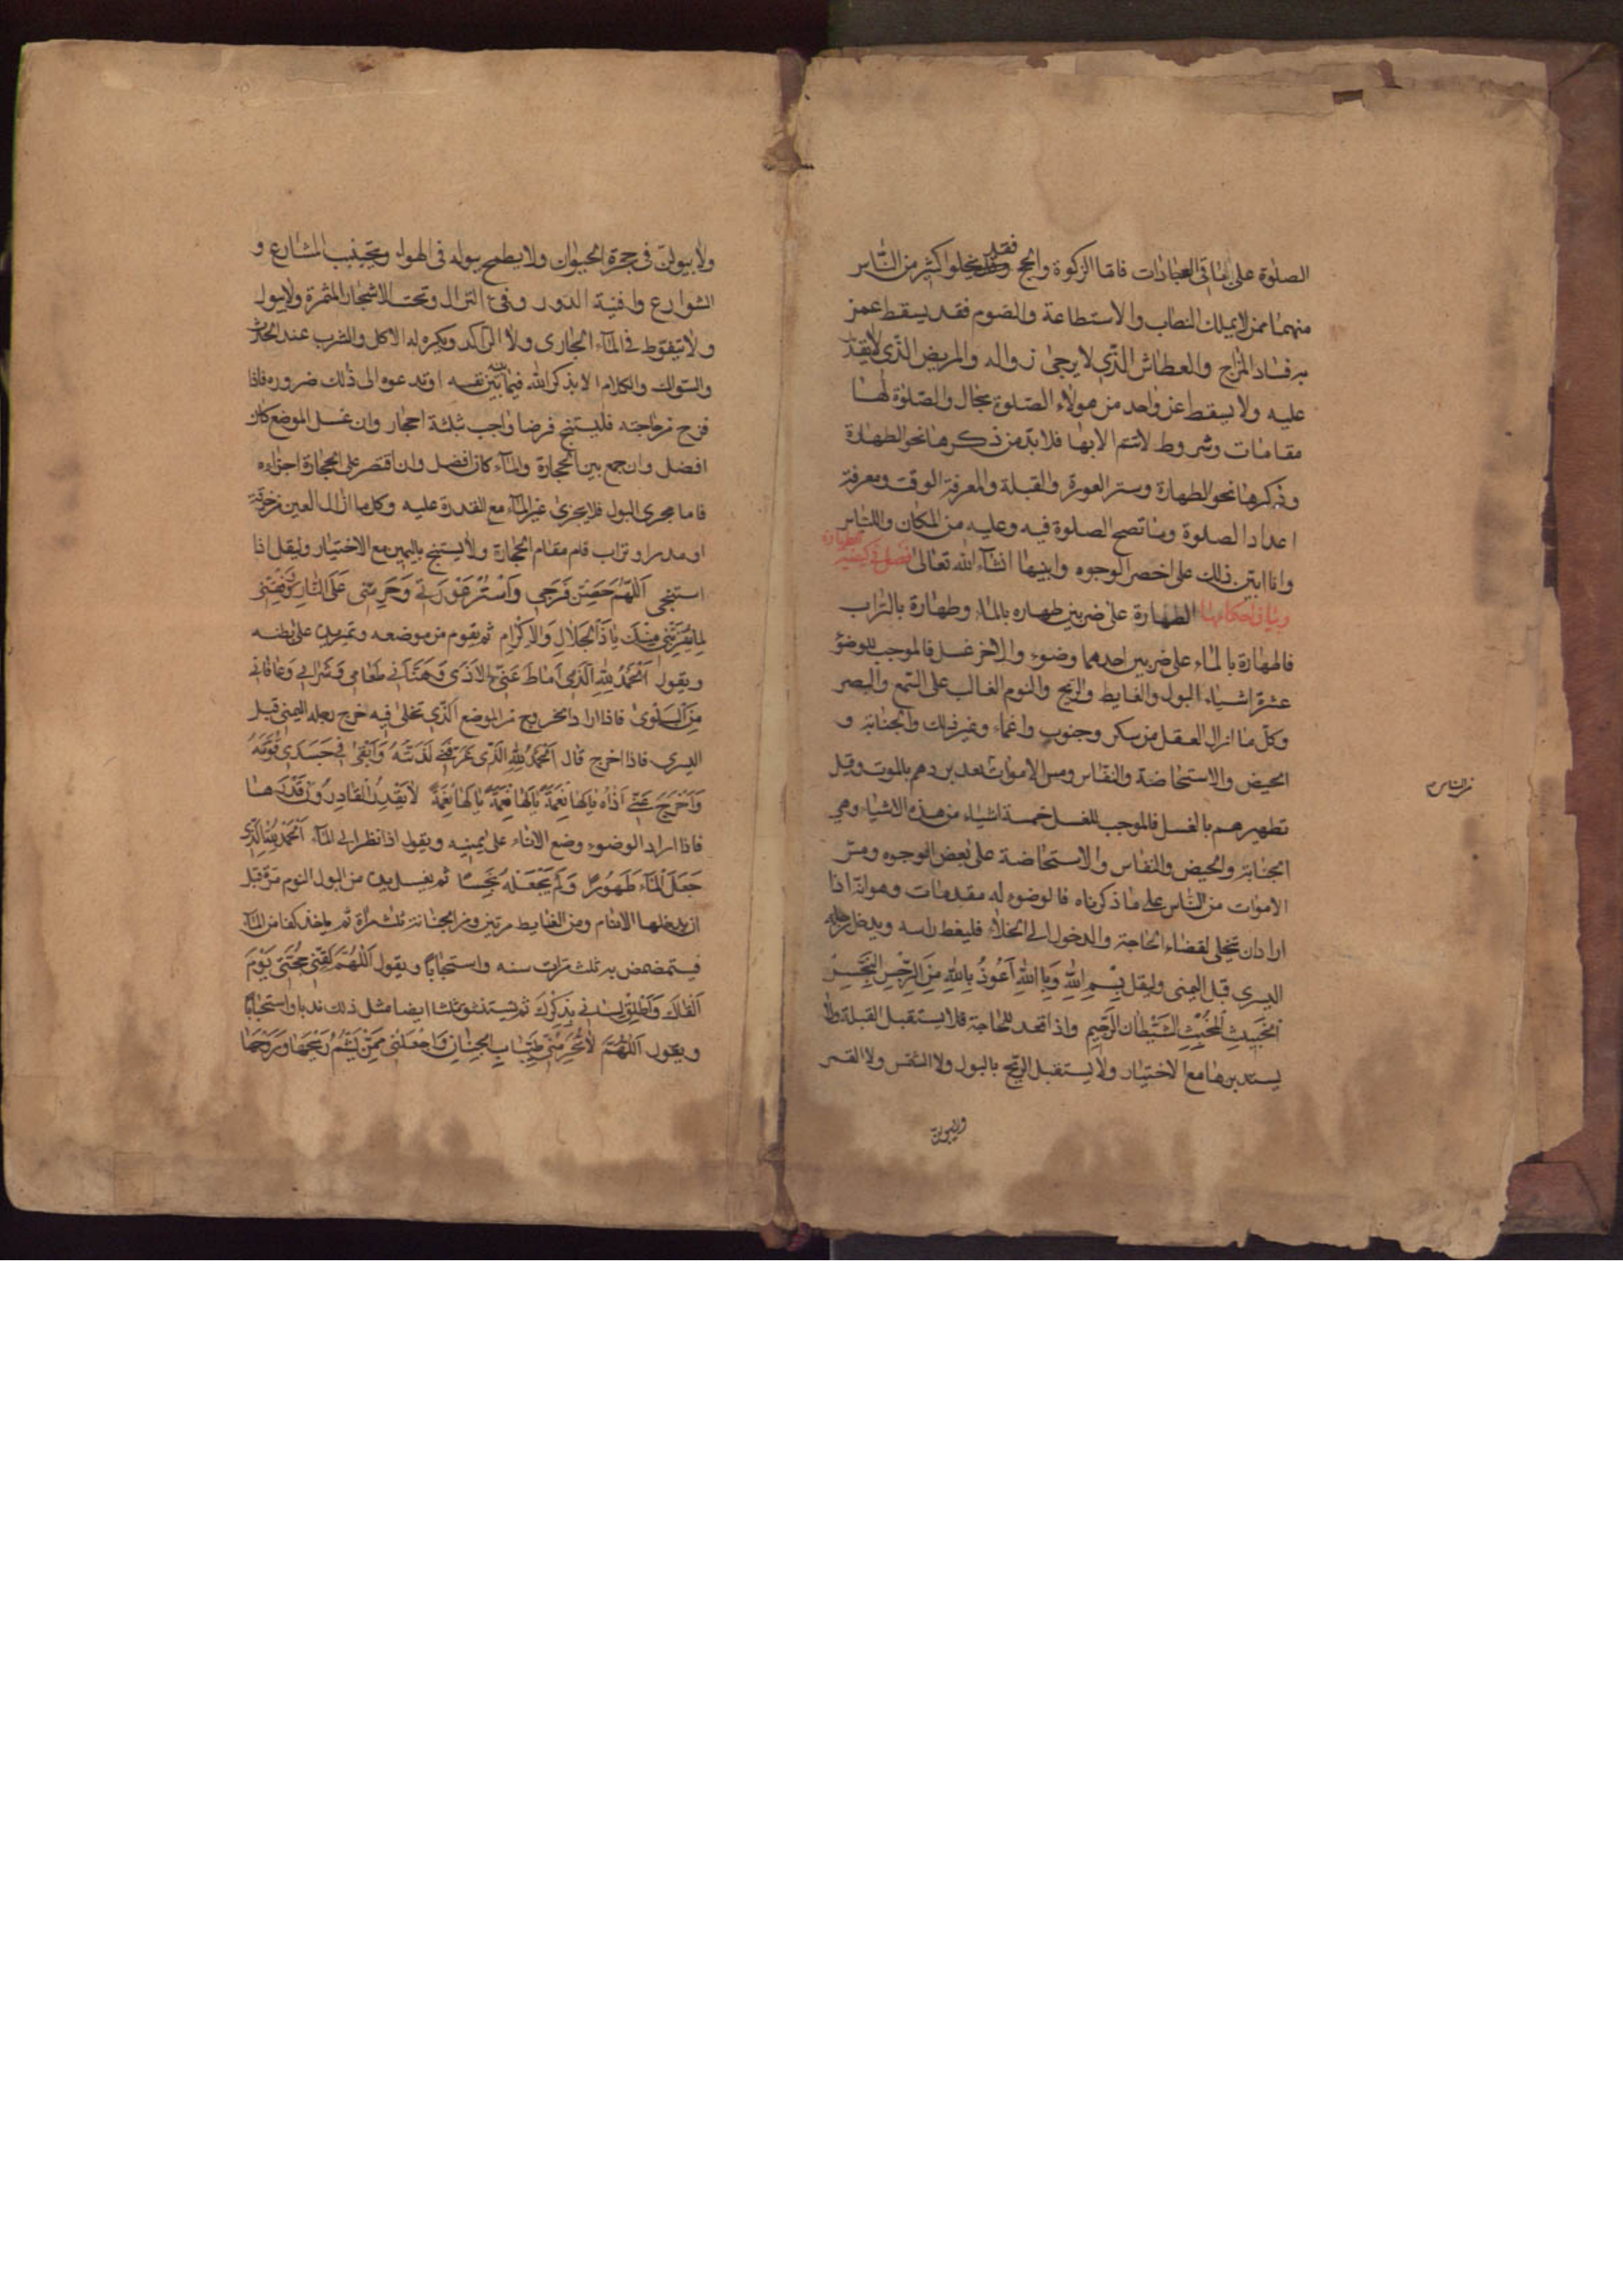 الصلوة على باقى العبادات فاما الزكوة والحج فقد يخلوا كثير من الناس
منهما ممن لا يملك النصاب والاستطاعة والصوم فقد يسقط عمن
به فساد المزاج والعطاش الذى لا يرجى زواله والمريض الذى لا يقدر
عليه ولا يسقط عن واحد من هولاء الصلوة بحال والصلوة لها
مقامات وشروط لا تتم الا بها فلا بد من ذكرها نحو الطهارة
وذكرها نحو الطهارة وستر العورة والقبلة والمعرفة الوقت ومعرفة
اعداد الصلوة وما تصح الصلوة فيه وعليه من المكان واللباس
وانا ابين ذلك على اخصر الوجوه وابينها انشاء الله تعالى فصل فى كيفية الطهارة
وبيان احكامها الطهارة على ضربين طهارة بالماء وطهارة بالتراب
فالطهارة بالماء على ضربين احدهما وضوء والاخر غسل فالموجب للوضؤ
عشرة اشياء البول والغايط والريح والنوم الغالب على السمع والبصر
وكل ما ازال العقل من سكر وجنون واغماء وغير ذلك والجنابة و
الحيض والاستحاضة والنفاس ومس الاموات بعد بردهم بالموت وقبل
من الناس
تطهيرهم بالغسل فالموجب للغسل خمسة اشياء من هذه الاشياء وهى
الجنابة والحيض والنفاس والاستحاضة على بعض الوجوه ومس
الاموات من الناس على ما ذكرناه فالوضوء له مقدمات وهو انه اذا
اراد ان يتخلى لقضاء الحاجة والدخول الى الخلاء فليغط راسه ويدخل رجله
اليسرى قبل اليمنى وليقل بِسْمِ اللهِ وَبِاللهِ اَعُوذُ بِاللهِ مِنَ الرِّجْسِ النَّجَسِ
الْخَبِيثِ الْمُخْبِثِ الشَّيْطَانِ الرَّجِيمِ واذا قعد للحاجة فلا يستقبل القبلة ولا
يستدبرها مع الاختيار ولا يستقبل الريح بالبول ولا الشمس ولا القمر
ولا يبولن
ولا يبولن فى جحرة الحيوان ولا يطمح ببوله فى الهواء ويتجنب المشارع و
الشوارع وافنية الدور وفئ النزال وتحت الاشجار المثمرة ولا يبول
ولا يتغوط فى الماء الجارى ولا الراكد ويكره له الاكل والشرب عند الحدث
والسواك والكلام الا بذكر الله فيما بينه بين نفسه او تدعوه الى ذلك ضرورة فاذا
فرغ من حاجته فليستنج فرضا واجب بثلثة احجار وان غسل الموضع كان
افضل وان جمع بين الحجارة والماء كان افضل وان اقتصر على الحجارة اجزاه
فاما مجرى البول فلا يجزى غير الماء مع القدرة عليه وكل ما ازال العين من خرقة
او مدر او تراب قام مقام الحجارة ولا يستنج باليمين مع الاختيار وليقل اذا
استنجى اَللّٰهُمَّ حَصِّنْ فَرْجِى وَاسْتُرْ عَوْرَتِى وَحَرِّمْنِى عَلَى النَّارِ وَوَفِّقْنِى
لِمَا يُقَرِّبُنِى مِنْكَ يَا ذَا الْجَلَالِ وَالْاِكْرَامِ ثم يقوم من موضعه ويمر يده على بطنه
ويقول اَلْحَمْدُ لِلّٰهِ الَّذِى اَمَاطَ عَنِّى الْاَذَى وَهَنَّأَنِى طَعَامِى وَشَرَابِى وَعَافَانِى
مِنَ الْبَلْوَى فاذا اراد الخروج من الموضع الذى تخلى فيه اخرج رجله اليمنى قبل
اليسرى فاذا اخرج قال اَلْحَمْدُ لِلّٰهِ الَّذِى عَرَّفَنِى لَذَّتَهُ وَاَبْقَى فِى جَسَدِى قُوَّتَهُ
وَاَخْرَجَ عَنِّى اَذَاهُ يَا لَهَا نِعْمَةً يَا لَهَا نِعْمَةً يَا لَهَا نِعْمَةً لَا يَقْدِرُ الْقَادِرُونَ قَدْرَهَا
فاذا اراد الوضوء وضع الاناء على يمينه ويقول اذا نظر الى الماء اَلْحَمْدُ لِلّٰهِ الَّذِى
جَعَلَ الْمَاءَ طَهُورًا وَلَمْ يَجْعَلْهُ نَجِسًا ثم يغسل يده من البول النوم مرة قبل
ان يدخلها الاناء ومن الغايط مرتين ومن الجنابة ثلث مرات ثم ياخذ كفا من الماء
فيتمضمض به ثلث مرات سنه واستحبابًا ويقول اَللّٰهُمَّ لَقِّنِى حُجَّتِى يَوْمَ
اَلْقَاكَ وَاَطْلِقْ لِسَانِى بِذِكْرِكَ ثم يستنشق ثلثا ايضا مثل ذلك ندبا واستحبابًا
ويقول اَللّٰهُمَّ لَا تُحَرِّمْنِى طَيِّبَاتِ الْجِنَانِ وَاجْعَلْنِى مِمَّنْ يَشُمُّ رِيحَهَا وَرَوْحَهَا